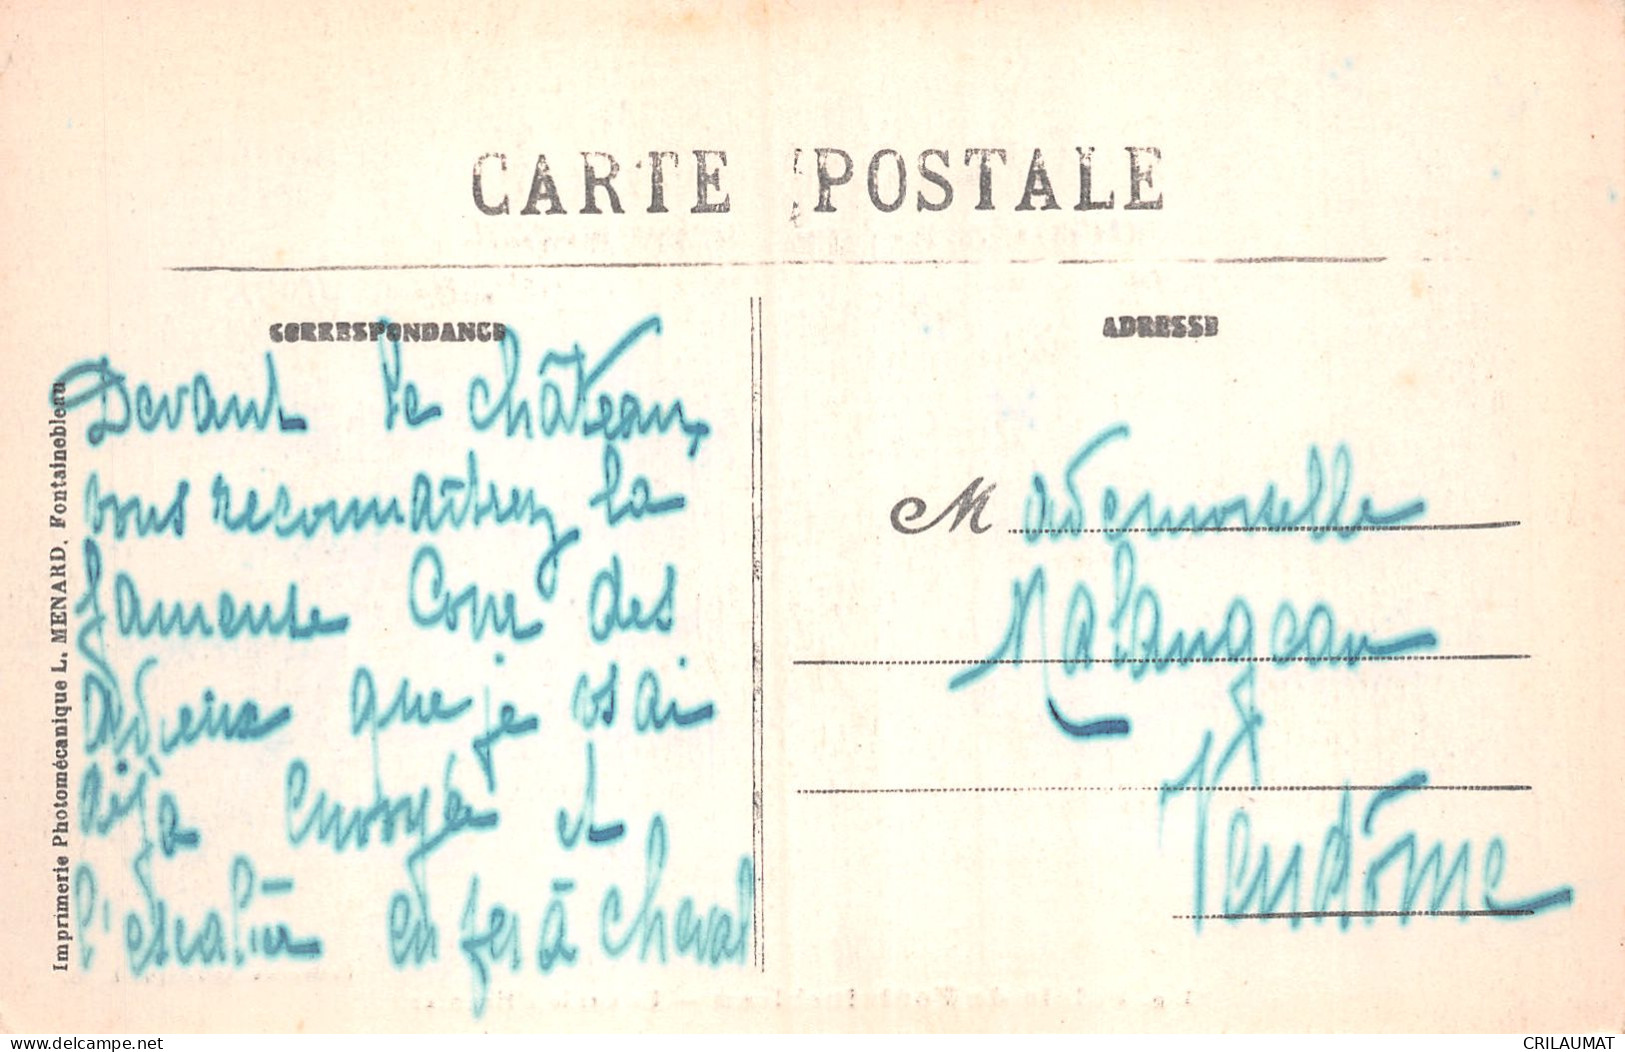 CARTE POSTALE
CORRESPONDANCE
ADRESSE
Devant le château,
vous reconnaîtrez la
fameuse Cour des
adieux que je vs ai
déjà envoyée et
l'escalier en fer à cheval
Mademoiselle
Malangeau
Vendôme
Imprimerie Photomécanique L. MENARD, Fontainebleau
delcampe.net
CRILAUMAT